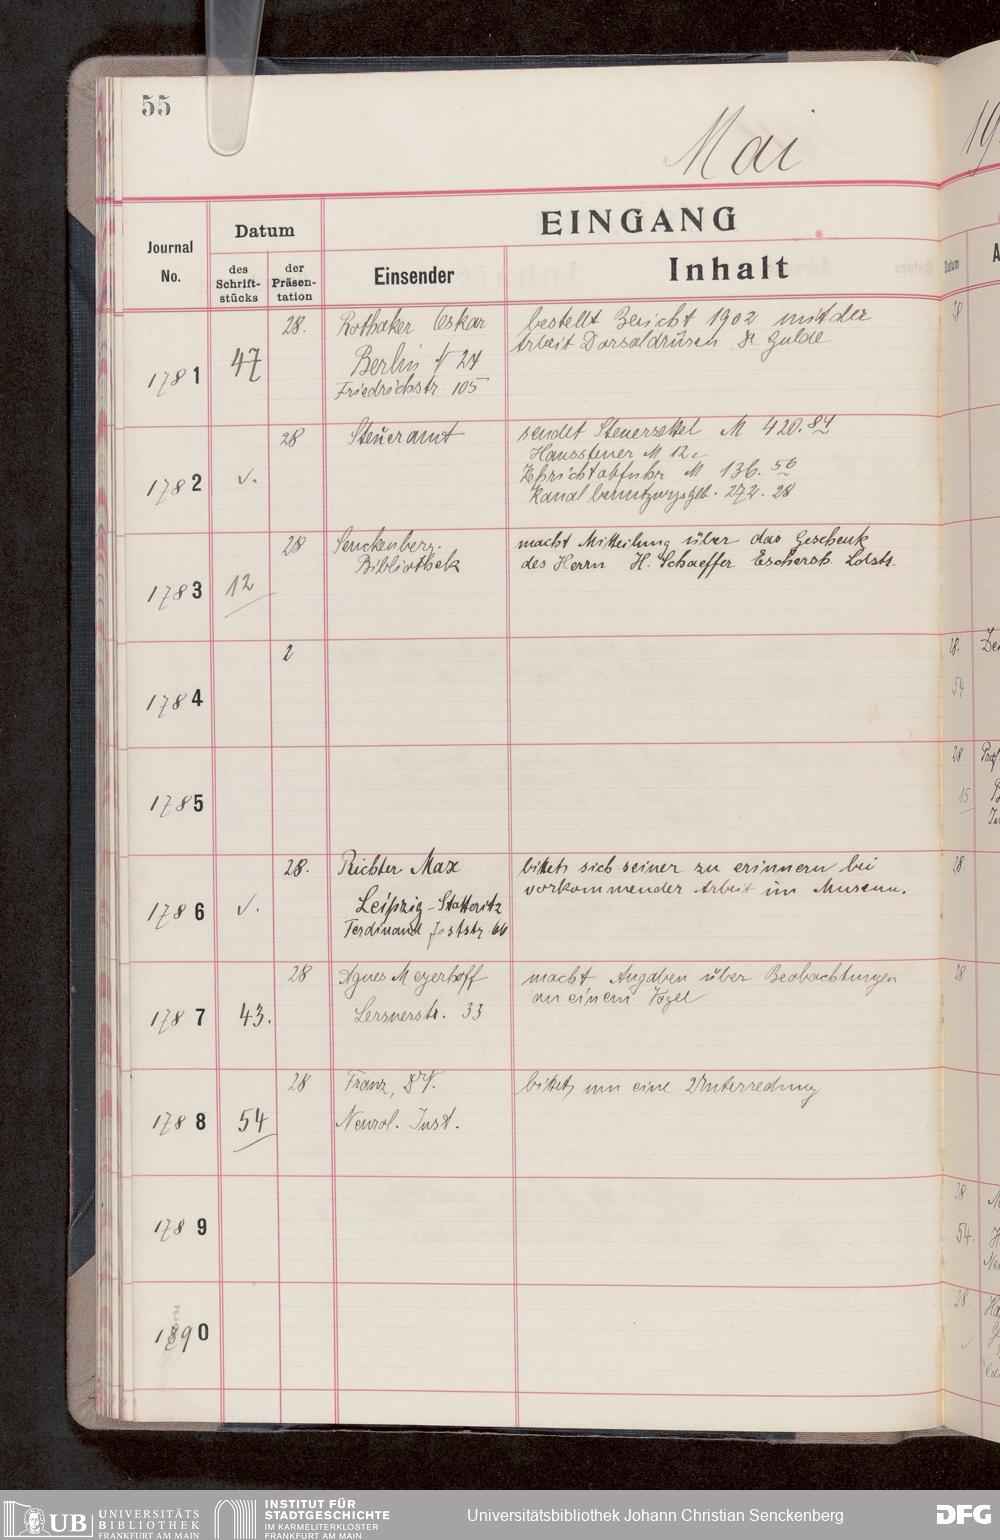 55
Mai
19
EINGANG
Datum
Journal
No.
des
Schrift-
stücks
der
Präsen-
tation
Einsender
Inhalt
Datum
A
1781
47
28.
Rothaker Oskar
Berlin
24
Friedrichstr. 105
bestellt Bericht 1902 mit der
Arbeit Dorsaldrüsen
Gulde
28
1782
v.
28
Steueramt
sendet Steuerzettel M 420.84
Haussteuer M 12.-
Kehrichtabfuhr M 136.56
Kanalbenutzungsgeb. 272.28
1783
12
28
Senckenberg.
Bibliothek
macht Mitteilung über das Geschenk
des Herrn H. Schaeffer Eschersh. Ldstr.
1784
2
28.
54
1785
28
15.
1786
v.
28.
Richter Max
Leipzig-Stötteritz
Ferdinand Joststr. 66
bittet, sich seiner zu erinnern bei
vorkommender Arbeit im Museum.
28
1787
43.
28
Agnes Meyerhoff
Lersnerstr. 33
macht Angaben über Beobachtungen
an einem Vogel
28
1788
54
28
Franz, Dr V.
Neurol. Inst.
bittet, um eine Unterredung
1789
28
54.
7
1890
28.
UB UNIVERSITÄTS
BIBLIOTHEK
FRANKFURT AM MAIN
INSTITUT FÜR
STADTGESCHICHTE
IM KARMELITERKLOSTER
FRANKFURT AM MAIN
Universitätsbibliothek Johann Christian Senckenberg
DFG